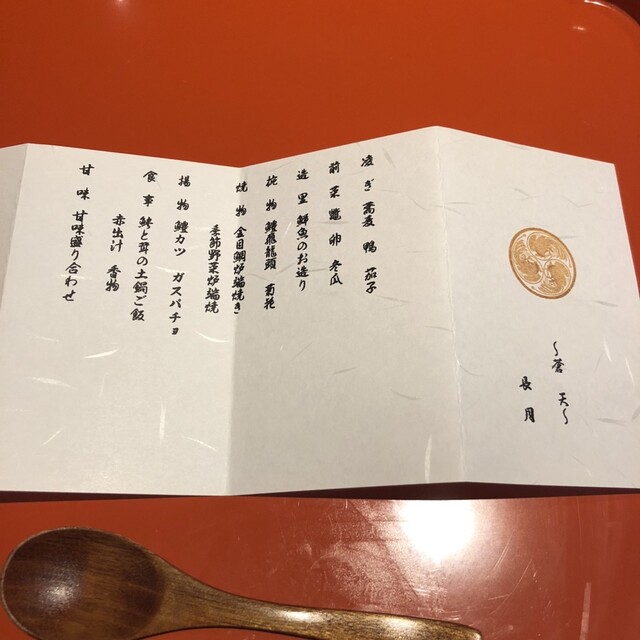 〜蒼 天〜
長 月
凌ぎ 蕎麦 鴨 茄子
前菜 鼈 卵 冬瓜
造里 鮮魚のお造り
椀物 鱧飛龍頭 菊花
焼物 金目鯛炉端焼き
季節野菜炉端焼
揚物 鱧カツ ガスパチョ
食事 鯵と茸の土鍋ご飯
赤出汁 香物
甘味 甘味盛り合わせ